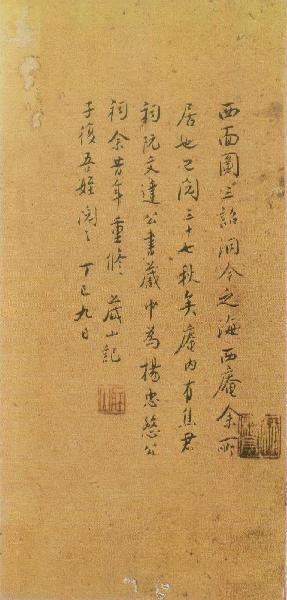 西面圖三詔洞今之海西庵余所
居也已閱三十七秋矣庵內有焦君
祠阮文達公書藏中為楊忠愍公
祠余昔年重修 嵗山記
子復吾姪閱之 丁巳九日